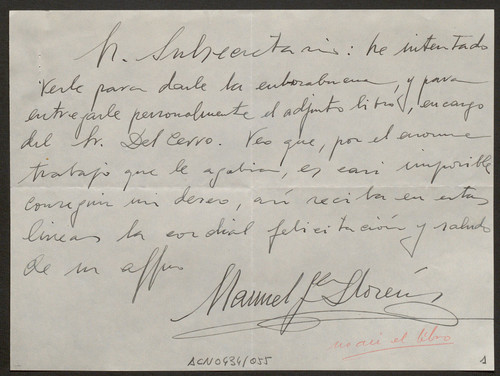 Sr. Subsecretario: he intentado
verle para darle la enhorabuena, y para
entregarle personalmente el adjunto libro, encargo
del Sr. Del Cerro. Veo que, por el enorme
trabajo que le agobia, es casi imposible
conseguir mi deseo, así reciba en estas
líneas la cordial felicitación y saludo
de su affmo
Manuel Llorens
el libro
ACN0434/055
A